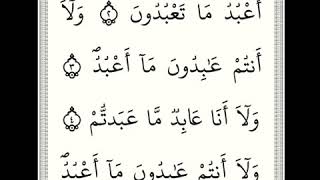 أَعْبُدُ مَا تَعْبُدُونَ ۝٢ وَلَآ
أَنتُمْ عَـٰبِدُونَ مَآ أَعْبُدُ ۝٣
وَلَآ أَنَا۠ عَابِدٌ مَّا عَبَدتُّمْ ۝٤
وَلَآ أَنتُمْ عَـٰبِدُونَ مَآ أَعْبُدُ